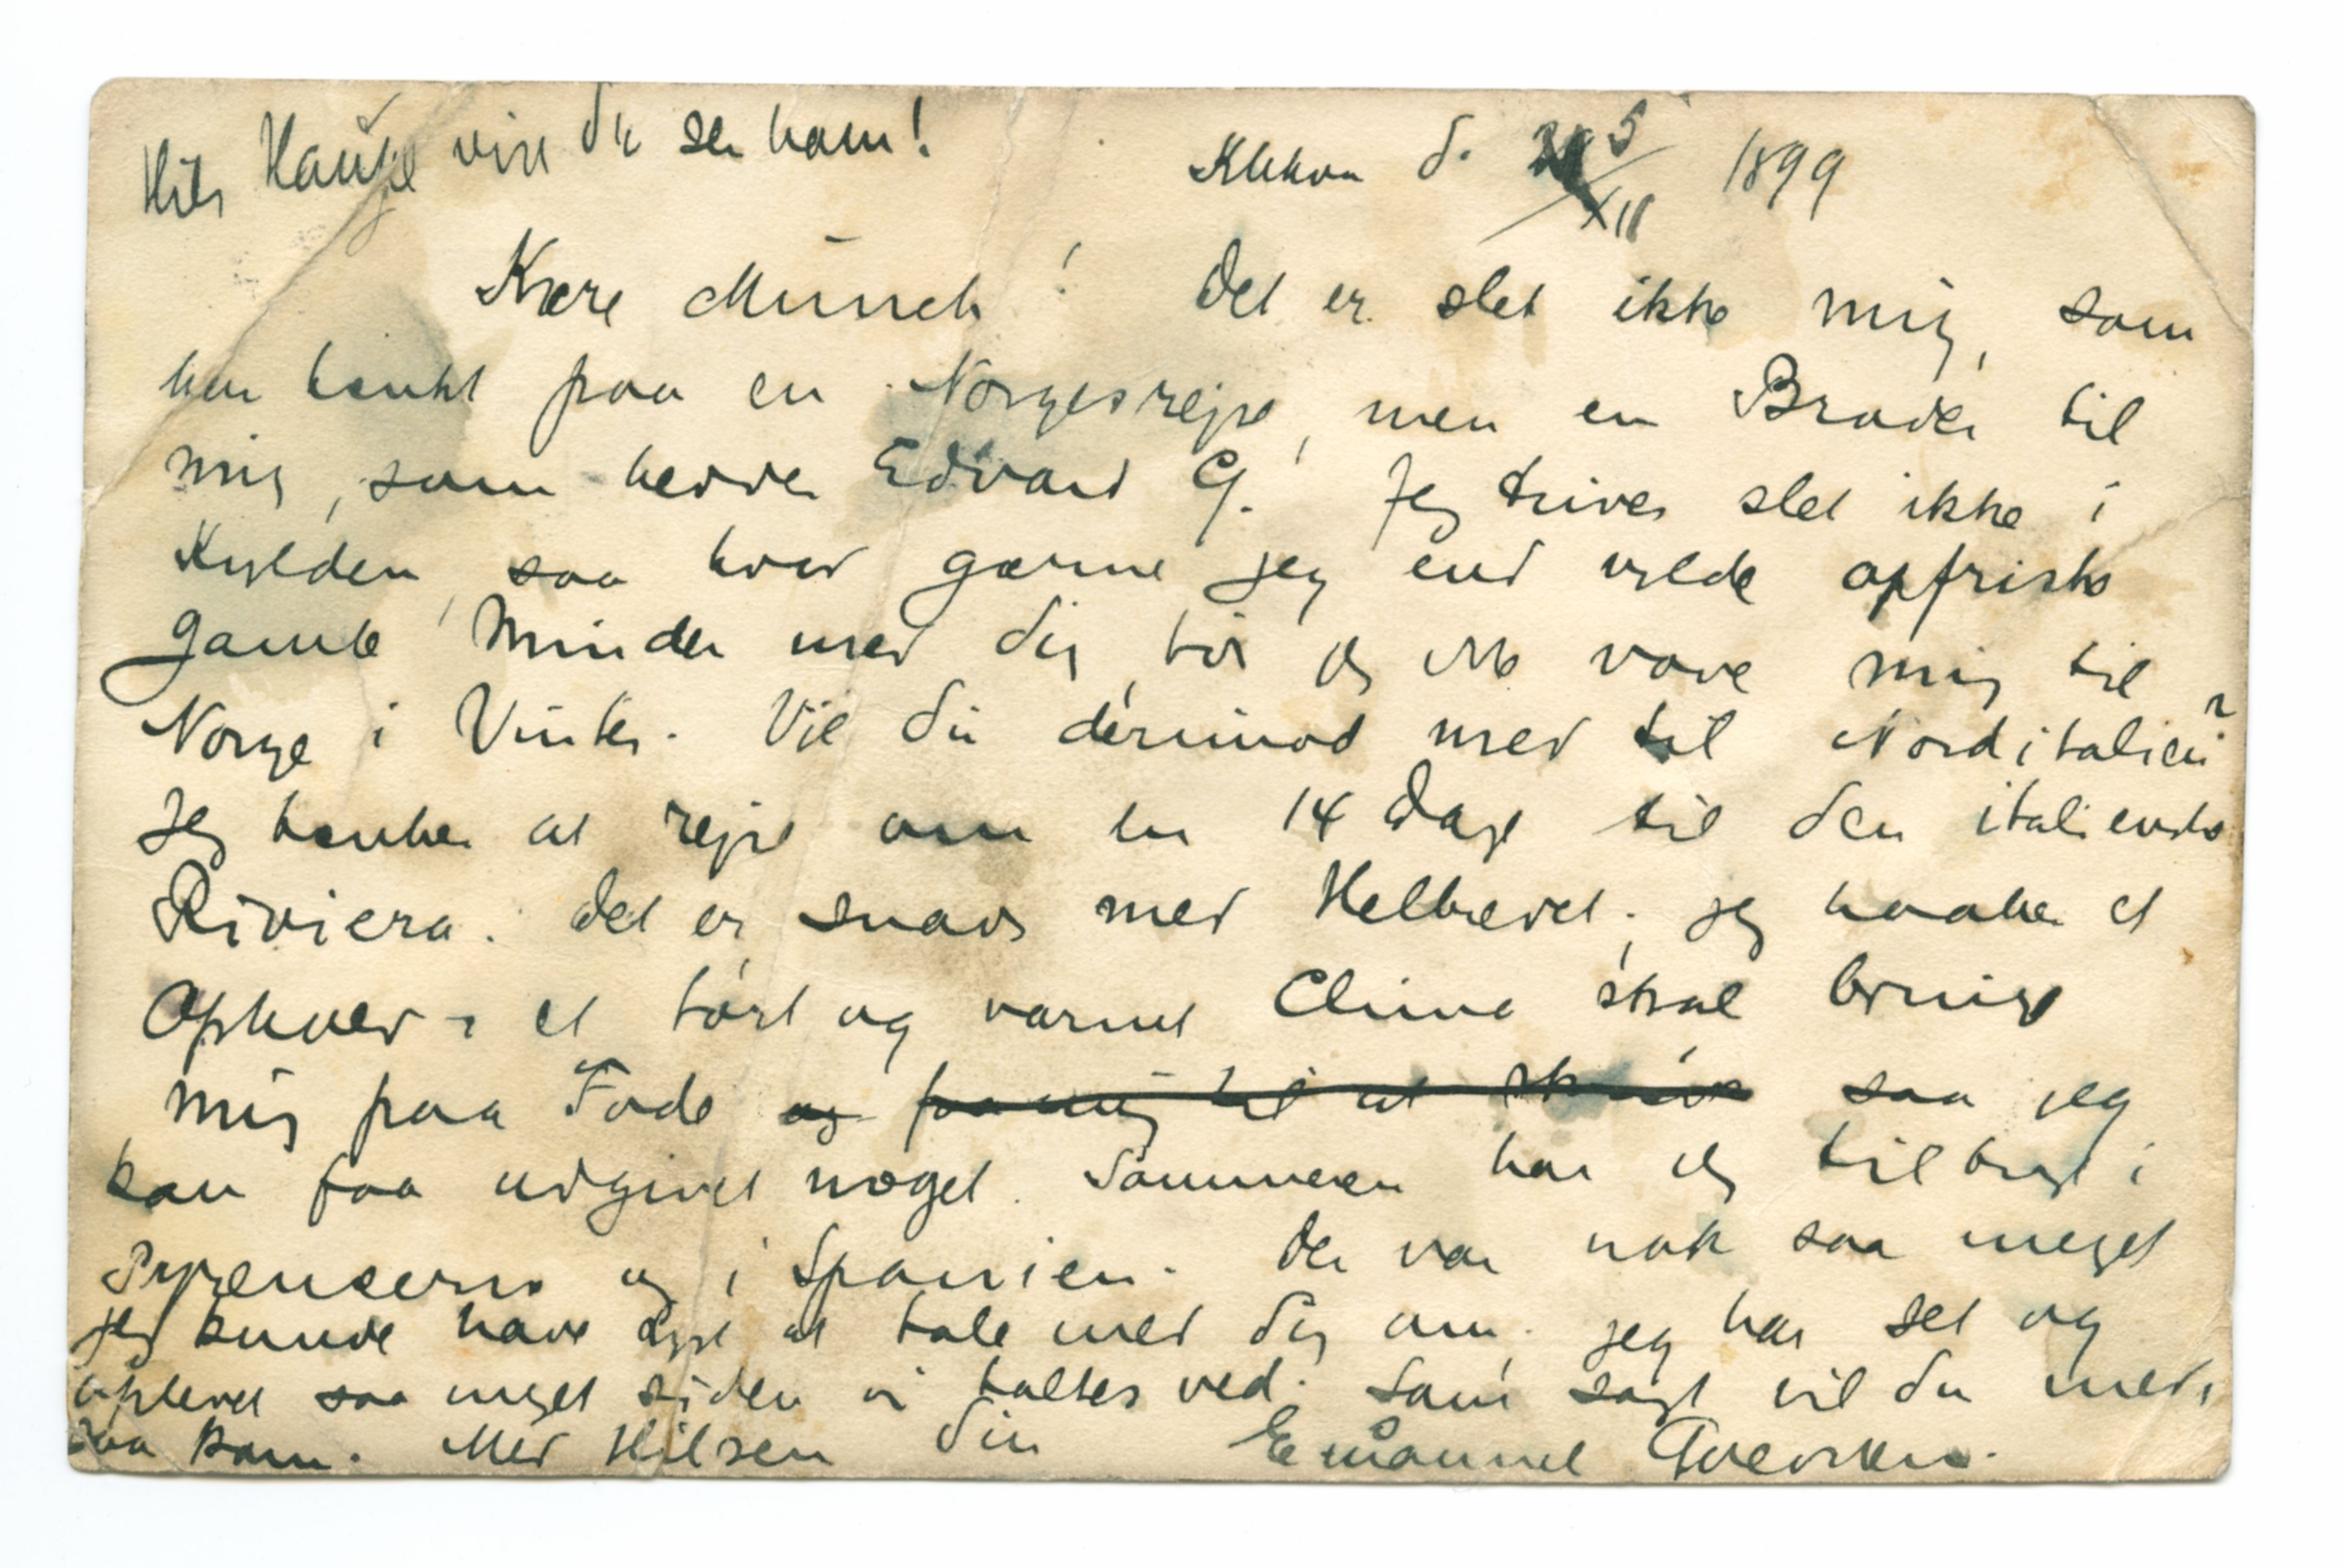 Hils Hauge viss du ser ham!
Kbhvn d. 5/XII 1899
Kære Munch! Det er slet ikke mig, som
har tænkt paa en Norgesrejse, men en Broder til
mig, som hedder Edvard G. Jeg trives slet ikke i
Kulden, saa hvor gærne jeg end vilde opfriske
gamle Minder med dig, tør jeg ikke vove mig til
Norge i Vinter. Vil du derimod med til Norditalien?
Jeg tænker at rejse om en 14 Dage til den italienske
Riviera. Det er snavs med Helbredet; jeg haaber et
Ophold i et tørt og varmt Clima skal bringe
mig paa Fode og faa mig til at skrive saa jeg
kan faa udgivet noget. Sommeren har jeg tilbragt i
Pyrenæerne og i Spanien. Der var nok saa meget
jeg kunde have Lyst at tale med dig om. Jeg har set og
oplevet saa meget siden vi taltes ved. Som sagt vil du med,
saa kom. Med Hilsen din Emanuel